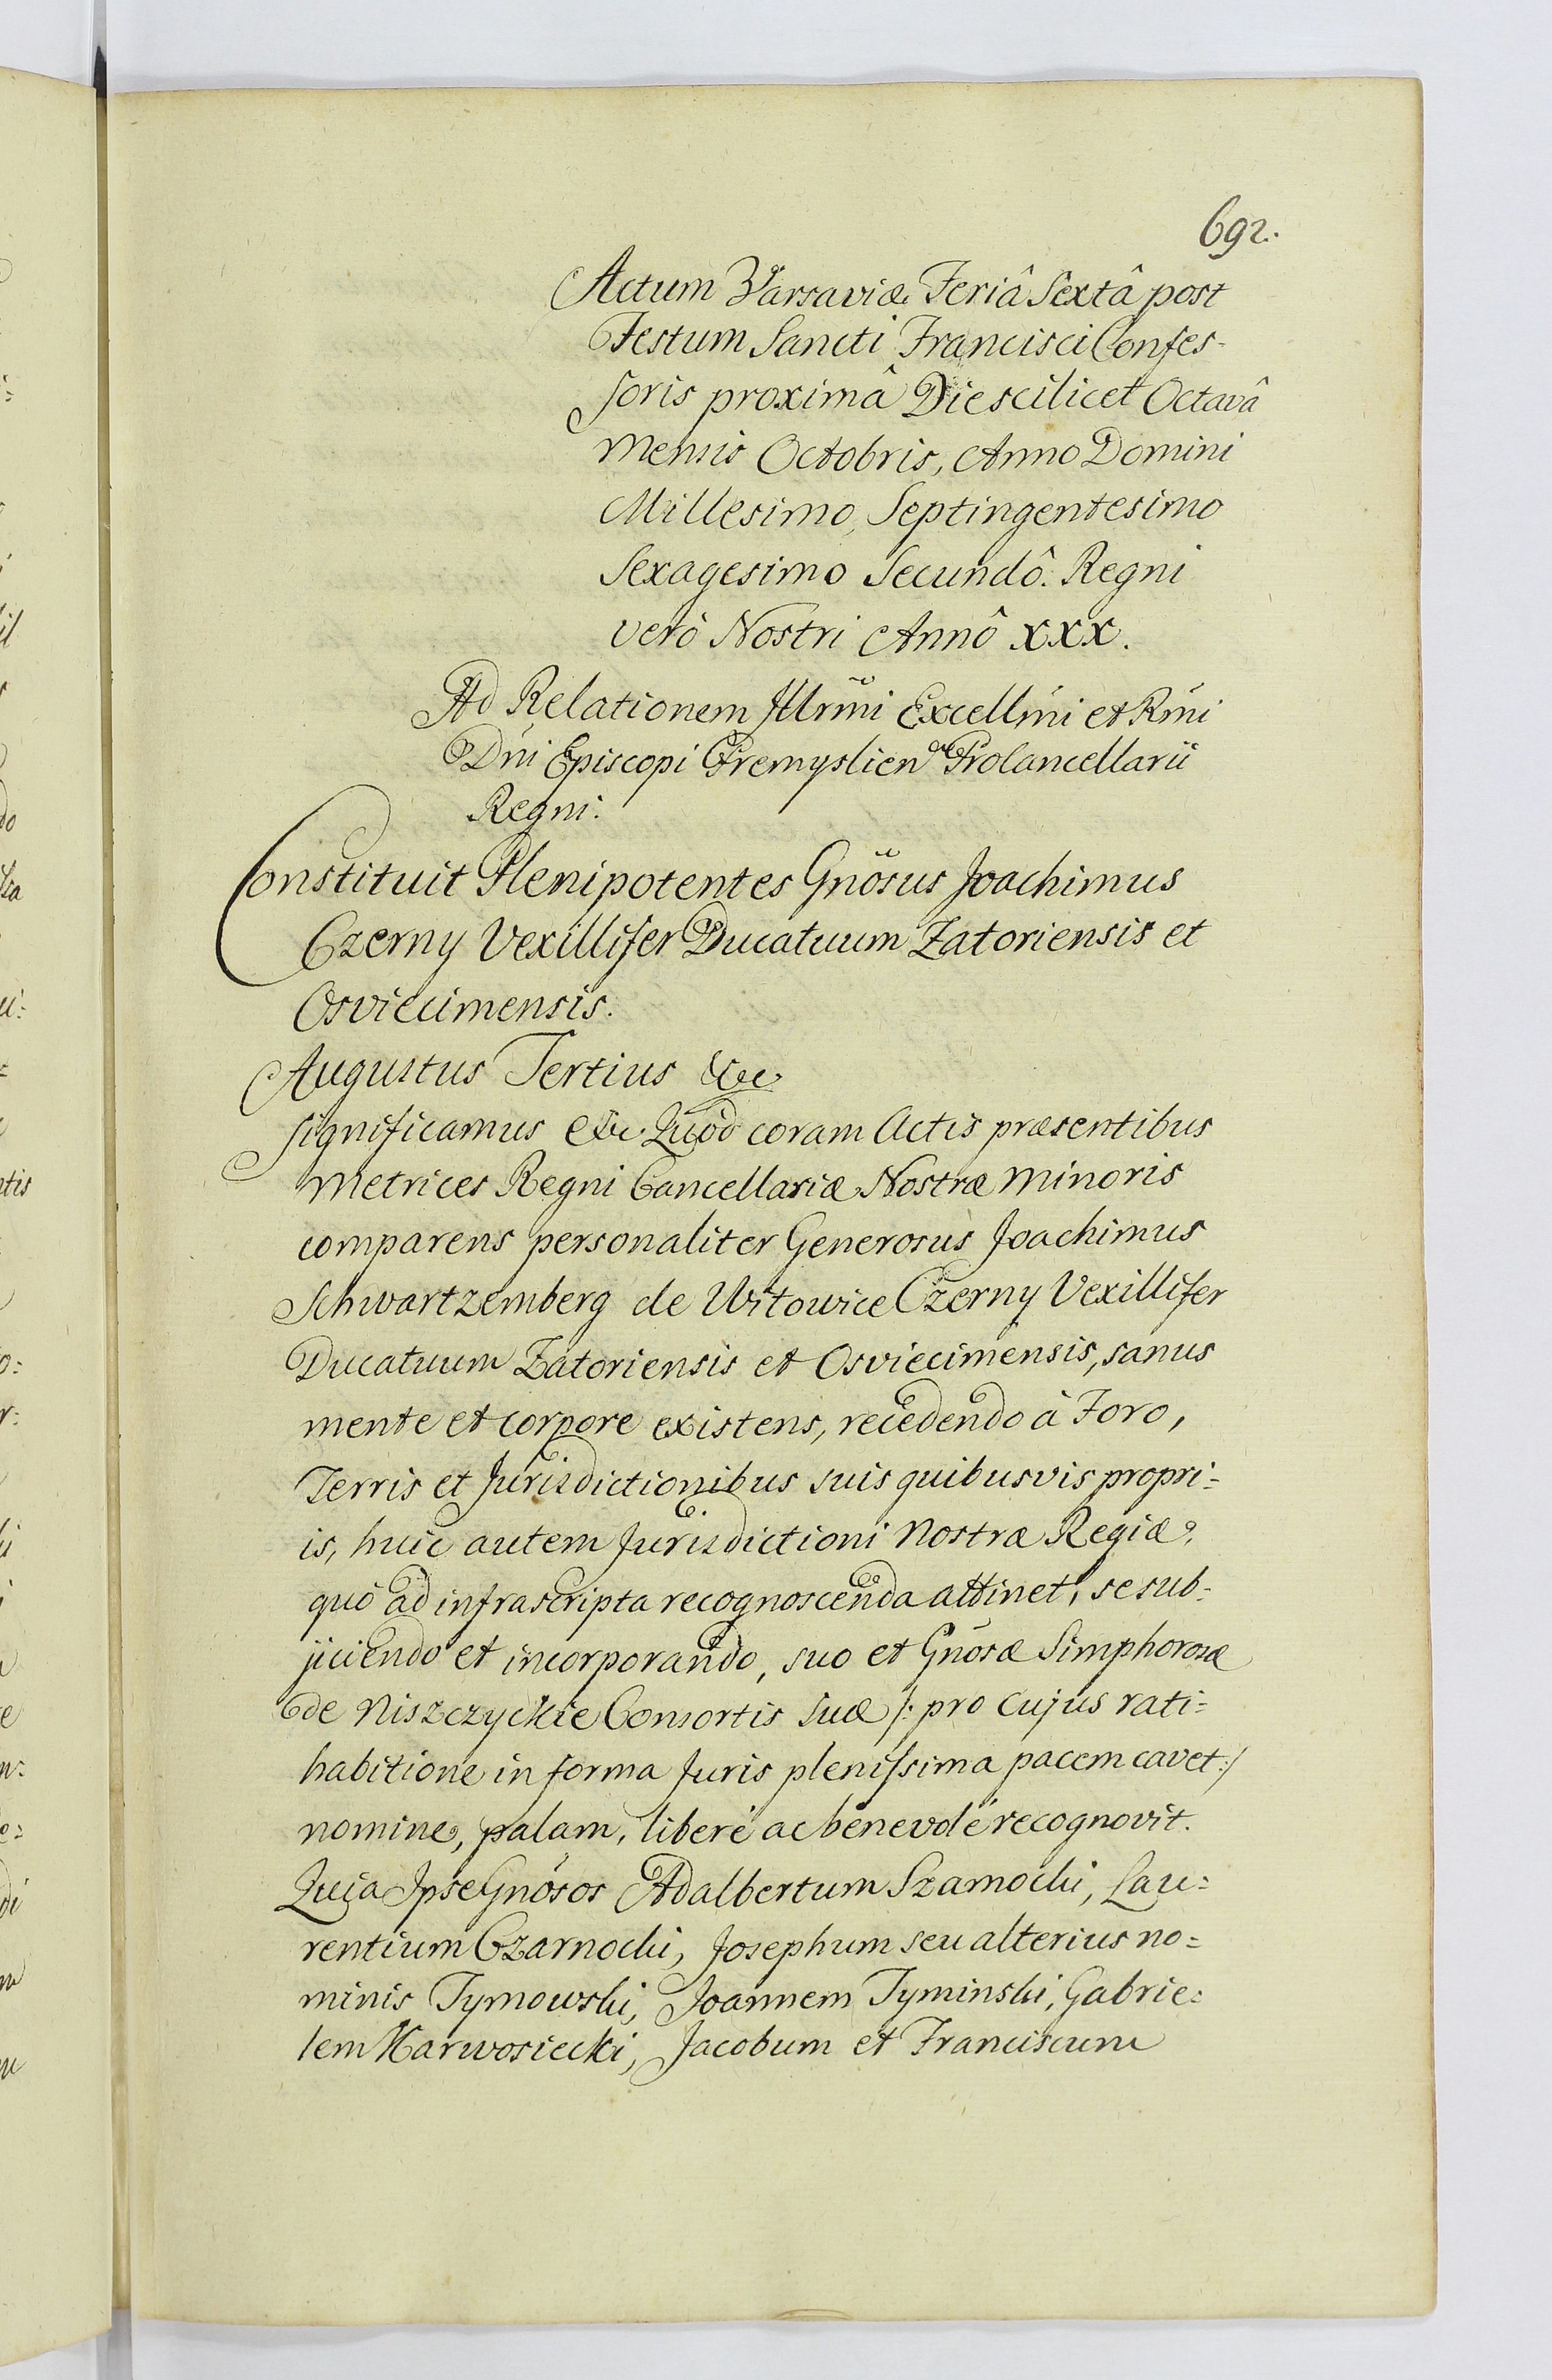 692.
Actum Varsaviæ Feriâ Sextâ post
Festum Sancti Francisci Confes-
soris proximâ Die scilicet Octavâ
Mensis Octobris, Anno Domini
Millesimo, Septingentesimo
Sexagesimo Secundô. Regni
verò Nostri Annô XXX.
Ad Relationem Illrm̃i Excellm̃i et Rm̃i
Dñi Episcopi Premyslien Procancellarii
Regni.
Constituit Plenipotentes Gnõsus Joachimus
Czerny Vexillifer Ducatuum Zatoriensis et
Osviecimensis.
Augustus Tertius &c
Significamus &c. Quod coram Actis præsentibus
Metrices Regni Cancellariæ Nostræ Minoris
comparens personaliter Generosus Joachimus
Schwartzemberg de Witowice Czerny Vexillifer
Ducatuum Zatoriensis et Osviecimensis, sanus
mente et corpore existens, recedendo à Foro,
Terris et Jurisdictionibus suis quibusvis propri=
is, huic autem Jurisdictioni Nostræ Regiæ,
quò ad infrascripta recognoscenda attinet, se sub-
jiciendo et incorporando, suo et Gnõsæ Simphorosæ
de Niszczyckie Consortis suæ /: pro cujus rati=
habitione in forma Juris plenissima pacem cavet :/
nomine, palam, liberè ac benevolè recognovit.
Quia Ipse Gnõsos Adalbertum Szamocki, Lau=
rentium Czarnocki, Josephum seu alterius no=
minis Tymowski, Joannem Tyminski, Gabrie=
lem Karwosiecki, Jacobum et Franciscum